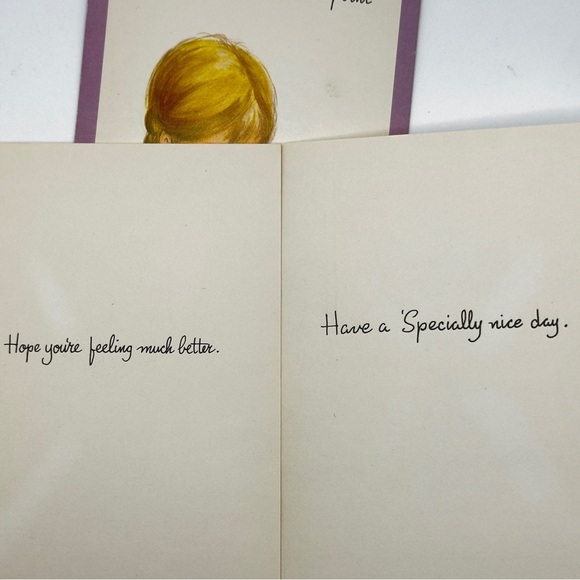 Hope you're feeling much better.
Have a 'Specially nice day.